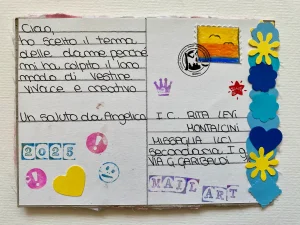 Ciao,
ho scelto il tema
delle dame perché
mi ha colpito il loro
modo di vestire
vivace e creativo
Un saluto da Angelica
2025
I.C. RITA LEVI
MONTALCINI
MISSAGLIA (LC)
secondaria I g
VIA G. GARIBALDI
MAIL ART